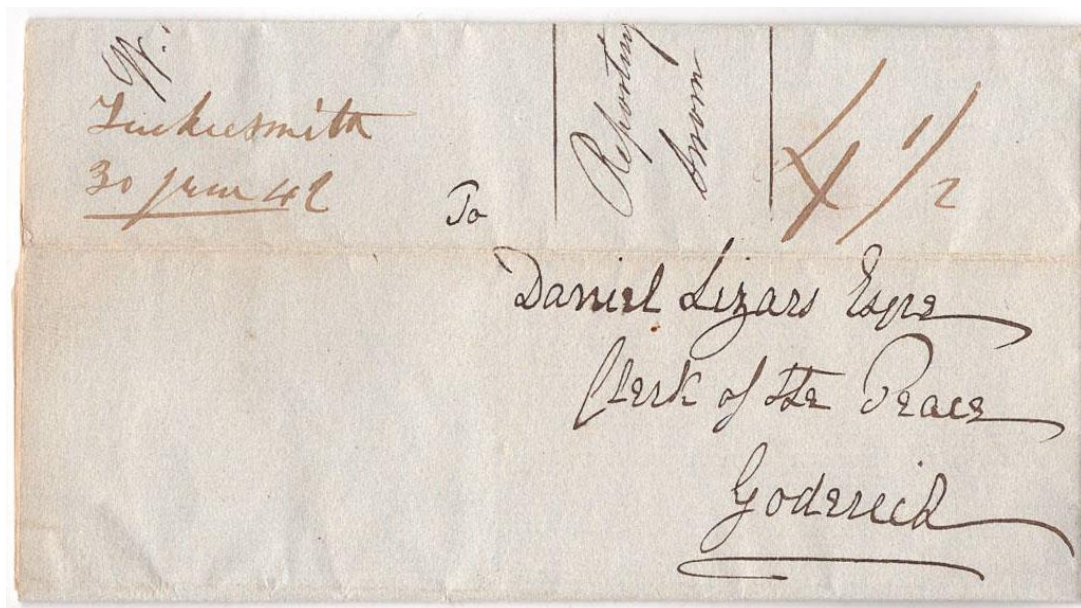 Tuckersmith
30 June 42
Reporting
4 1/2
To
Daniel Lizars Esqre
Clerk of the Peace
Goderich